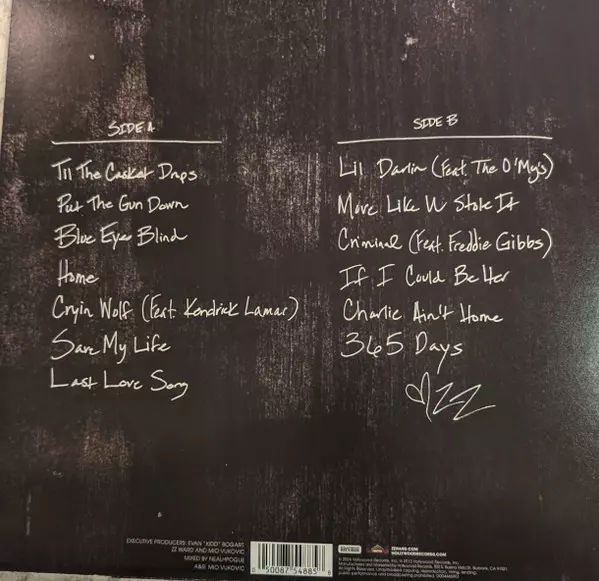 SIDE A
Til The Casket Drops
Put The Gun Down
Blue Eyes Blind
Home
Cryin Wolf (Feat. Kendrick Lamar)
Save My Life
Last Love Song
SIDE B
Lil Darlin (Feat. The O'My's)
Move Like U Stole It
Criminal (Feat. Freddie Gibbs)
If I Could Be Her
Charlie Ain't Home
365 Days
ZZ
EXECUTIVE PRODUCERS: EVAN "KIDD" BOGART,
ZZ WARD AND MIO VUKOVIC
MIXED BY NEAL H POGUE
A&R: MIO VUKOVIC
0 50087 54885 6
ZZWARD.COM
HOLLYWOODRECORDS.COM